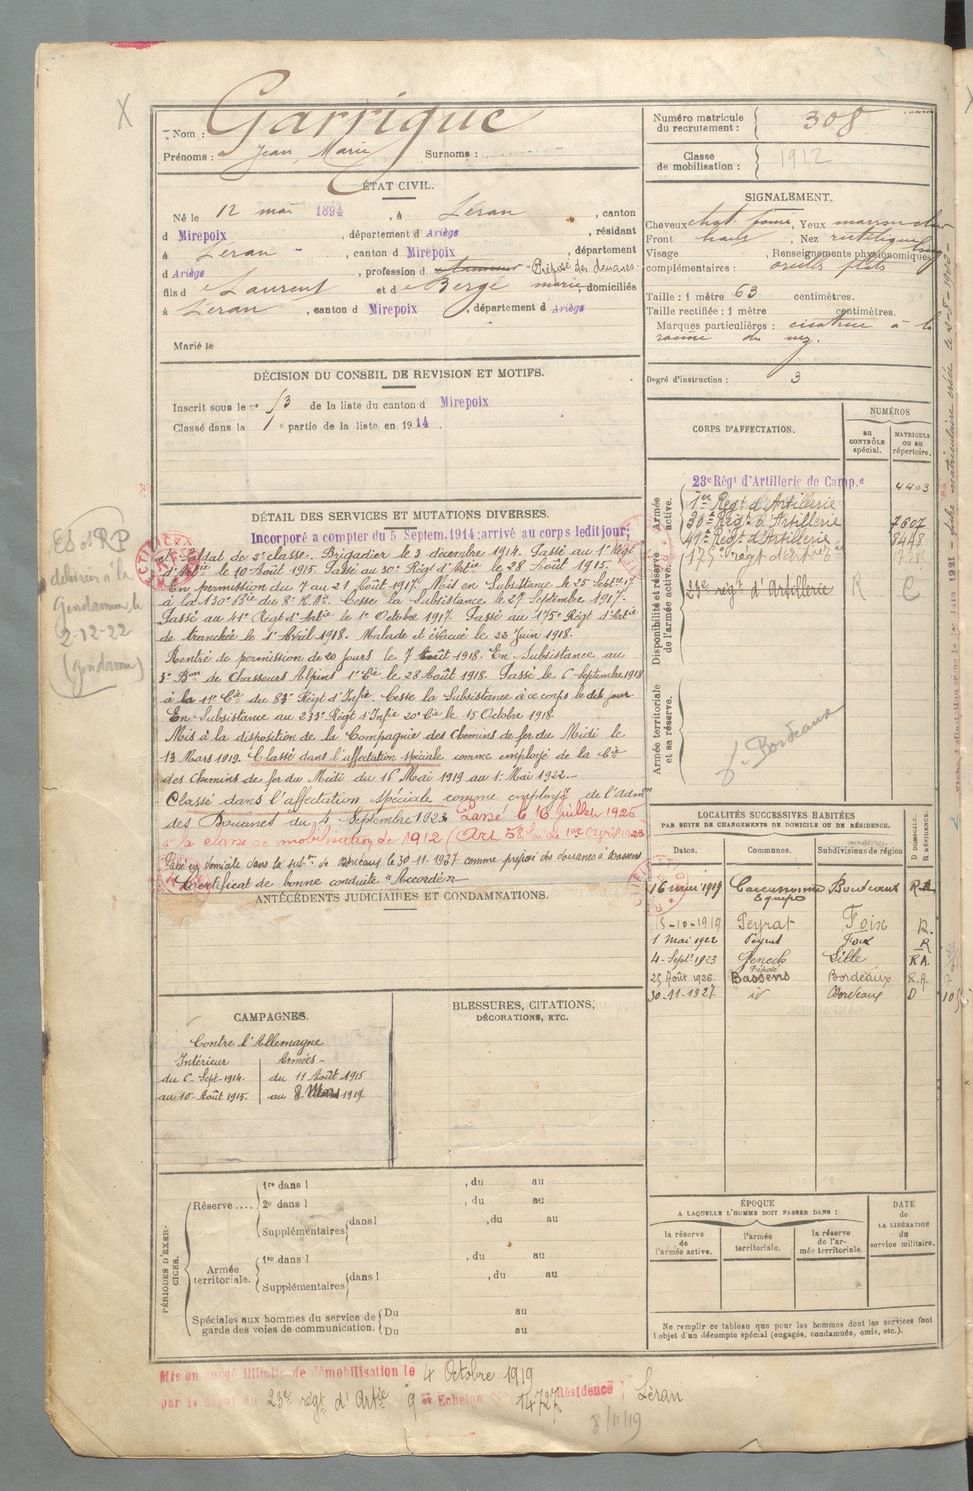 Nom : Garrigue
Prénoms : Jean Marie Surnoms :
Numéro matricule du recrutement : 308
Classe de mobilisation : 1912
ÉTAT CIVIL.
Né le 12 mai 1894, à Léran, canton
d Mirepoix, département d Ariège, résidant
à Léran, canton d Mirepoix, département
d Ariège, profession d Préposé des douanes
fils d e Laurent et d e Bergé marie, domiciliés
à Léran, canton d Mirepoix, département d Ariège
Marié le
SIGNALEMENT.
Cheveux chat. foncé, Yeux marron clair
Front haut, Nez rectiligne
Visage long, Renseignements physionomiques
complémentaires : oreilles plates
Taille : 1 mètre 63 centimètres.
Taille rectifiée : 1 mètre centimètres.
Marques particulières : cicatrice à la
racine du nez.
Degré d'instruction : 3
DÉCISION DU CONSEIL DE REVISION ET MOTIFS.
Inscrit sous le n° 53 de la liste du canton d Mirepoix
Classé dans la 1e partie de la liste en 1914.
DÉTAIL DES SERVICES ET MUTATIONS DIVERSES.
Incorporé à compter du 5 Septem. 1914; arrivé au corps ledit jour;
et Soldat de 2e classe. Brigadier le 3 décembre 1914. Passé au 1er Régt
d'Artie le 10 Août 1915. Passé au 30e Régt d'Artie le 28 Août 1915.
En permission du 7 au 21 Août 1917. Mis en Subsistance le 25 Septbre 17
à la 130e Bie du 8e R.A. Cesse la Subsistance le 27 Septembre 1917.
Passé au 41e Régt d'Artie le 1er Octobre 1917. Passé au 175e Régt d'Artie
de tranchée le 1er Avril 1918. Malade et évacué le 22 Juin 1918.
Rentré de permission de 20 jours le 7 Août 1918. En Subsistance au
3e Bon de Chasseurs Alpins 1e Cie le 28 Août 1918. Passé le 6 Septembre 1918
à la 11e Cie du 83e Régt d'Infie. Cesse la Subsistance à ce corps le dit jour
En Subsistance au 233e Régt d'Infie 20e Cie le 15 Octobre 1918
Mis à la disposition de la Compagnie des Chemins de fer du Midi le
13 Mars 1919. Classé dans l'affectation spéciale comme employé de la Cie
des Chemins de fer du Midi du 16 Mai 1919 au 1er Mai 1922.
Classé dans l'affectation spéciale comme employé de l'Admon
des Douanes du 4 Septembre 1923 Passé le 16 juillet 1925
à la classe de mobilisation de 1912 (Art. 58 loi du 1er Avril 1923
Passé en domicile dans la subon de Bordeaux le 30.11.1927 comme préposé des douanes à Bassens
Certificat de bonne conduite "Accordé"
CORPS D'AFFECTATION.
NUMÉROS
au CONTRÔLE spécial.
MATRICULE ou au répertoire.
Disponibilité et réserve de l'armée active.
Armée active.
23e Régt d'Artillerie de Camp.e 4403
1er Régt d'Artillerie
30e Régt d'Artillerie 7607
41e Régt d'Artillerie 8448
23e régt d'Artillerie R C
Armée territoriale et sa réserve.
Bordeaux
ES et RP
délivrés à la
Gendarmerie
2-12-22
(Gendarme)
LOCALITÉS SUCCESSIVES HABITÉES
PAR SUITE DE CHANGEMENTS DE DOMICILE OU DE RÉSIDENCE.
Dates. Communes. Subdivisions de région D DOMICILE. R RÉSIDENCE.
16 mai 1919 Carcassonne
-10-1919 Peyrat Foix R.
1 Mai 1922 Peyrat Foix R
4-Septe 1923 Lille RA
25 Août 1926 Bassens Bordeaux R.A.
30-11-1927 id Bordeaux D
ANTÉCÉDENTS JUDICIAIRES ET CONDAMNATIONS.
CAMPAGNES.
Contre l'Allemagne
Intérieur Armées
du 6 Sept. 1914. du 11 Août 1915
au 10 Août 1915. au 8 Mars 1919.
BLESSURES, CITATIONS,
DÉCORATIONS, ETC.
PÉRIODES D'EXERCICES.
Réserve..... 1re dans l , du au
2e dans l , du au
Supplémentaires dans l , du au
Armée territoriale. 1re dans l , du au
Supplémentaires dans l , du au
Spéciales aux hommes du service de garde des voies de communication. Du au
Du au
ÉPOQUE
A LAQUELLE L'HOMME DOIT PASSER DANS :
la réserve de l'armée active.
l'armée territoriale.
la réserve de l'armée territoriale.
DATE de LA LIBÉRATION du service militaire.
Ne remplir ce tableau que pour les hommes dont les services font
l'objet d'un décompte spécial (engagés, condamnés, omis, etc.).
Mis en congé illimité de démobilisation le 4 Octobre 1919
par le dépôt du 23e régt d'Artie 9e Echelon N° 14727 Résidence : Léran
8/11/19